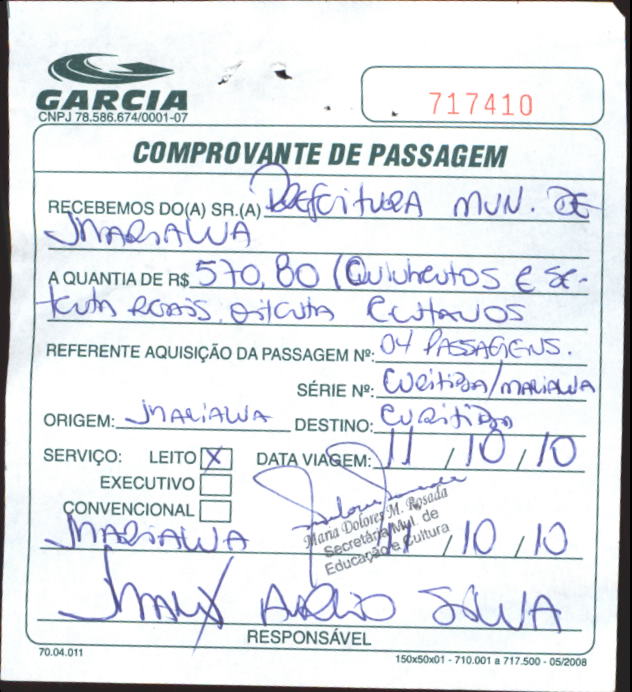 GARCIA
CNPJ 78.586.674/0001-07
717410
COMPROVANTE DE PASSAGEM
RECEBEMOS DO(A) SR.(A) PREFEITURA MUN. DE
MARIALVA
A QUANTIA DE R$ 570,80 (Quinhentos e se-
tenta reais, oitenta centavos
REFERENTE AQUISIÇÃO DA PASSAGEM Nº: 04 PASSAGENS.
SÉRIE Nº: CURITIBA/MARIALVA
ORIGEM: MARIALVA DESTINO: CURITIBA
SERVIÇO: LEITO X DATA VIAGEM: 11/10/10
EXECUTIVO
CONVENCIONAL
Maria Dolores M. Rosada
Secretária Mul. de
Educação e Cultura
MARIALVA 11/10/10
SILVA
RESPONSÁVEL
70.04.011
150x50x01 - 710.001 a 717.500 - 05/2008